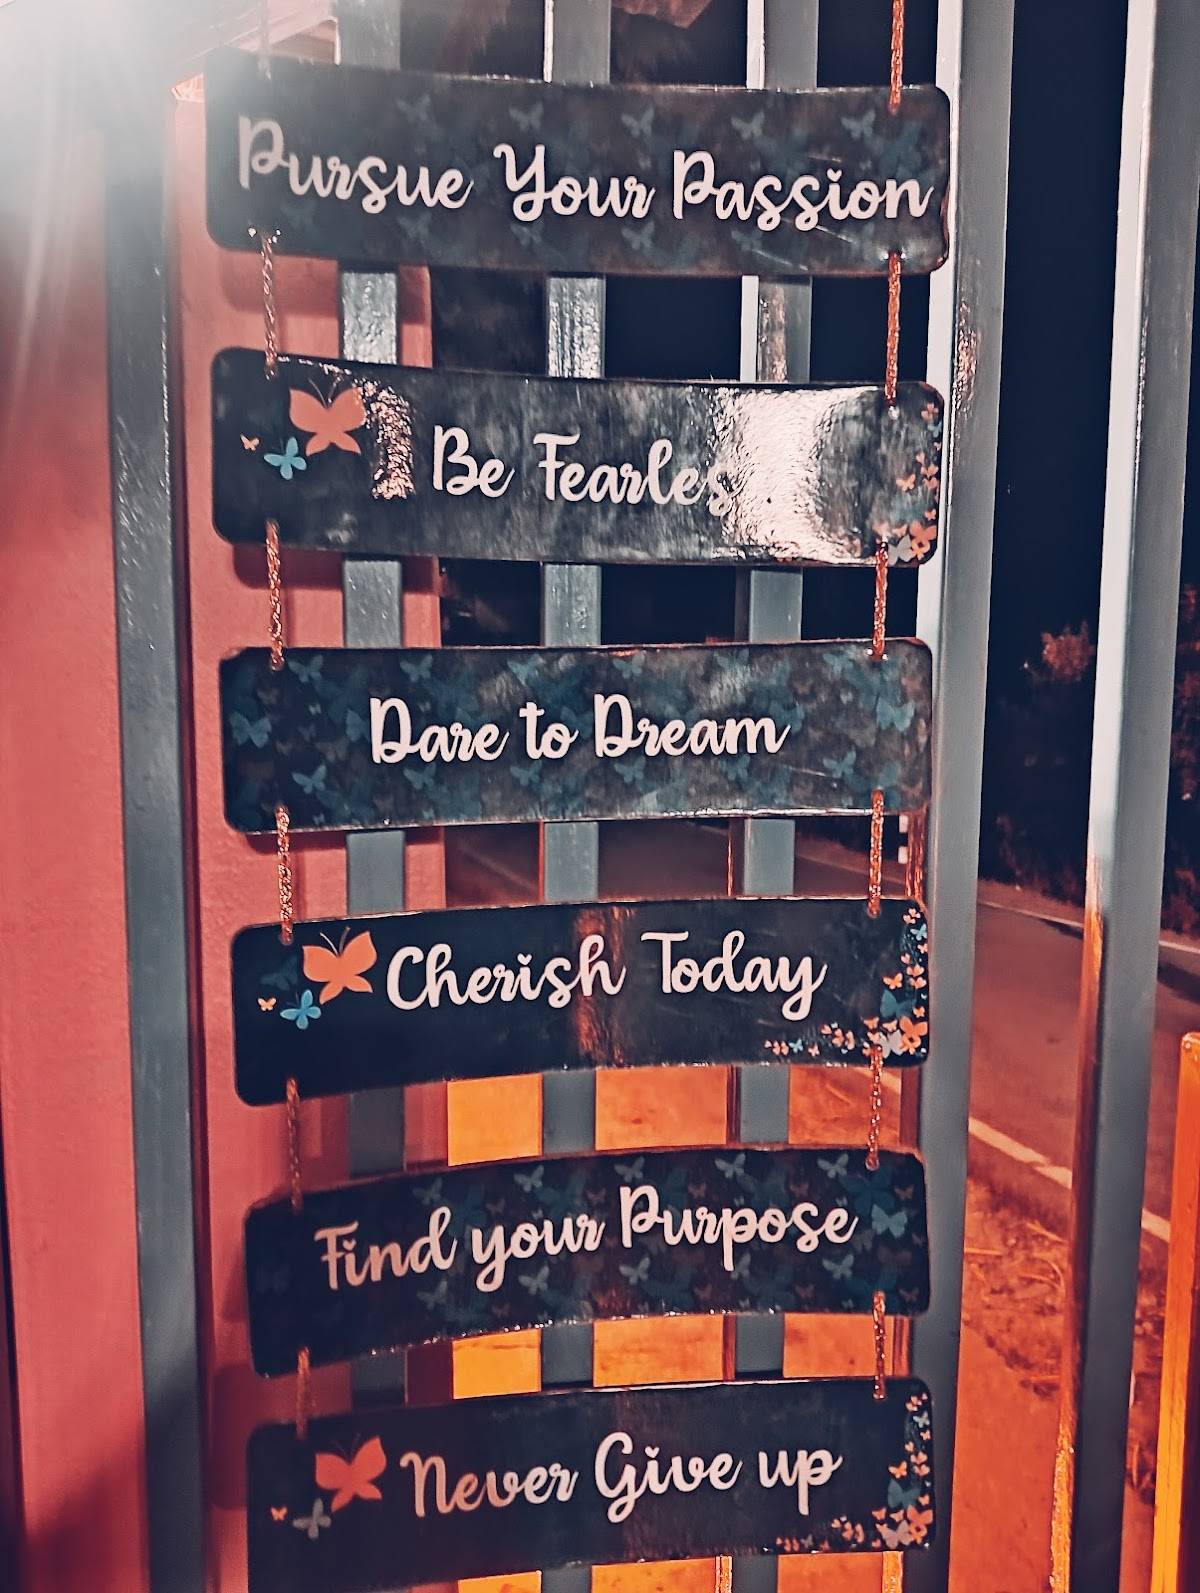 Pursue Your Passion
Be Fearles
Dare to Dream
Cherish Today
Find your Purpose
Never Give up